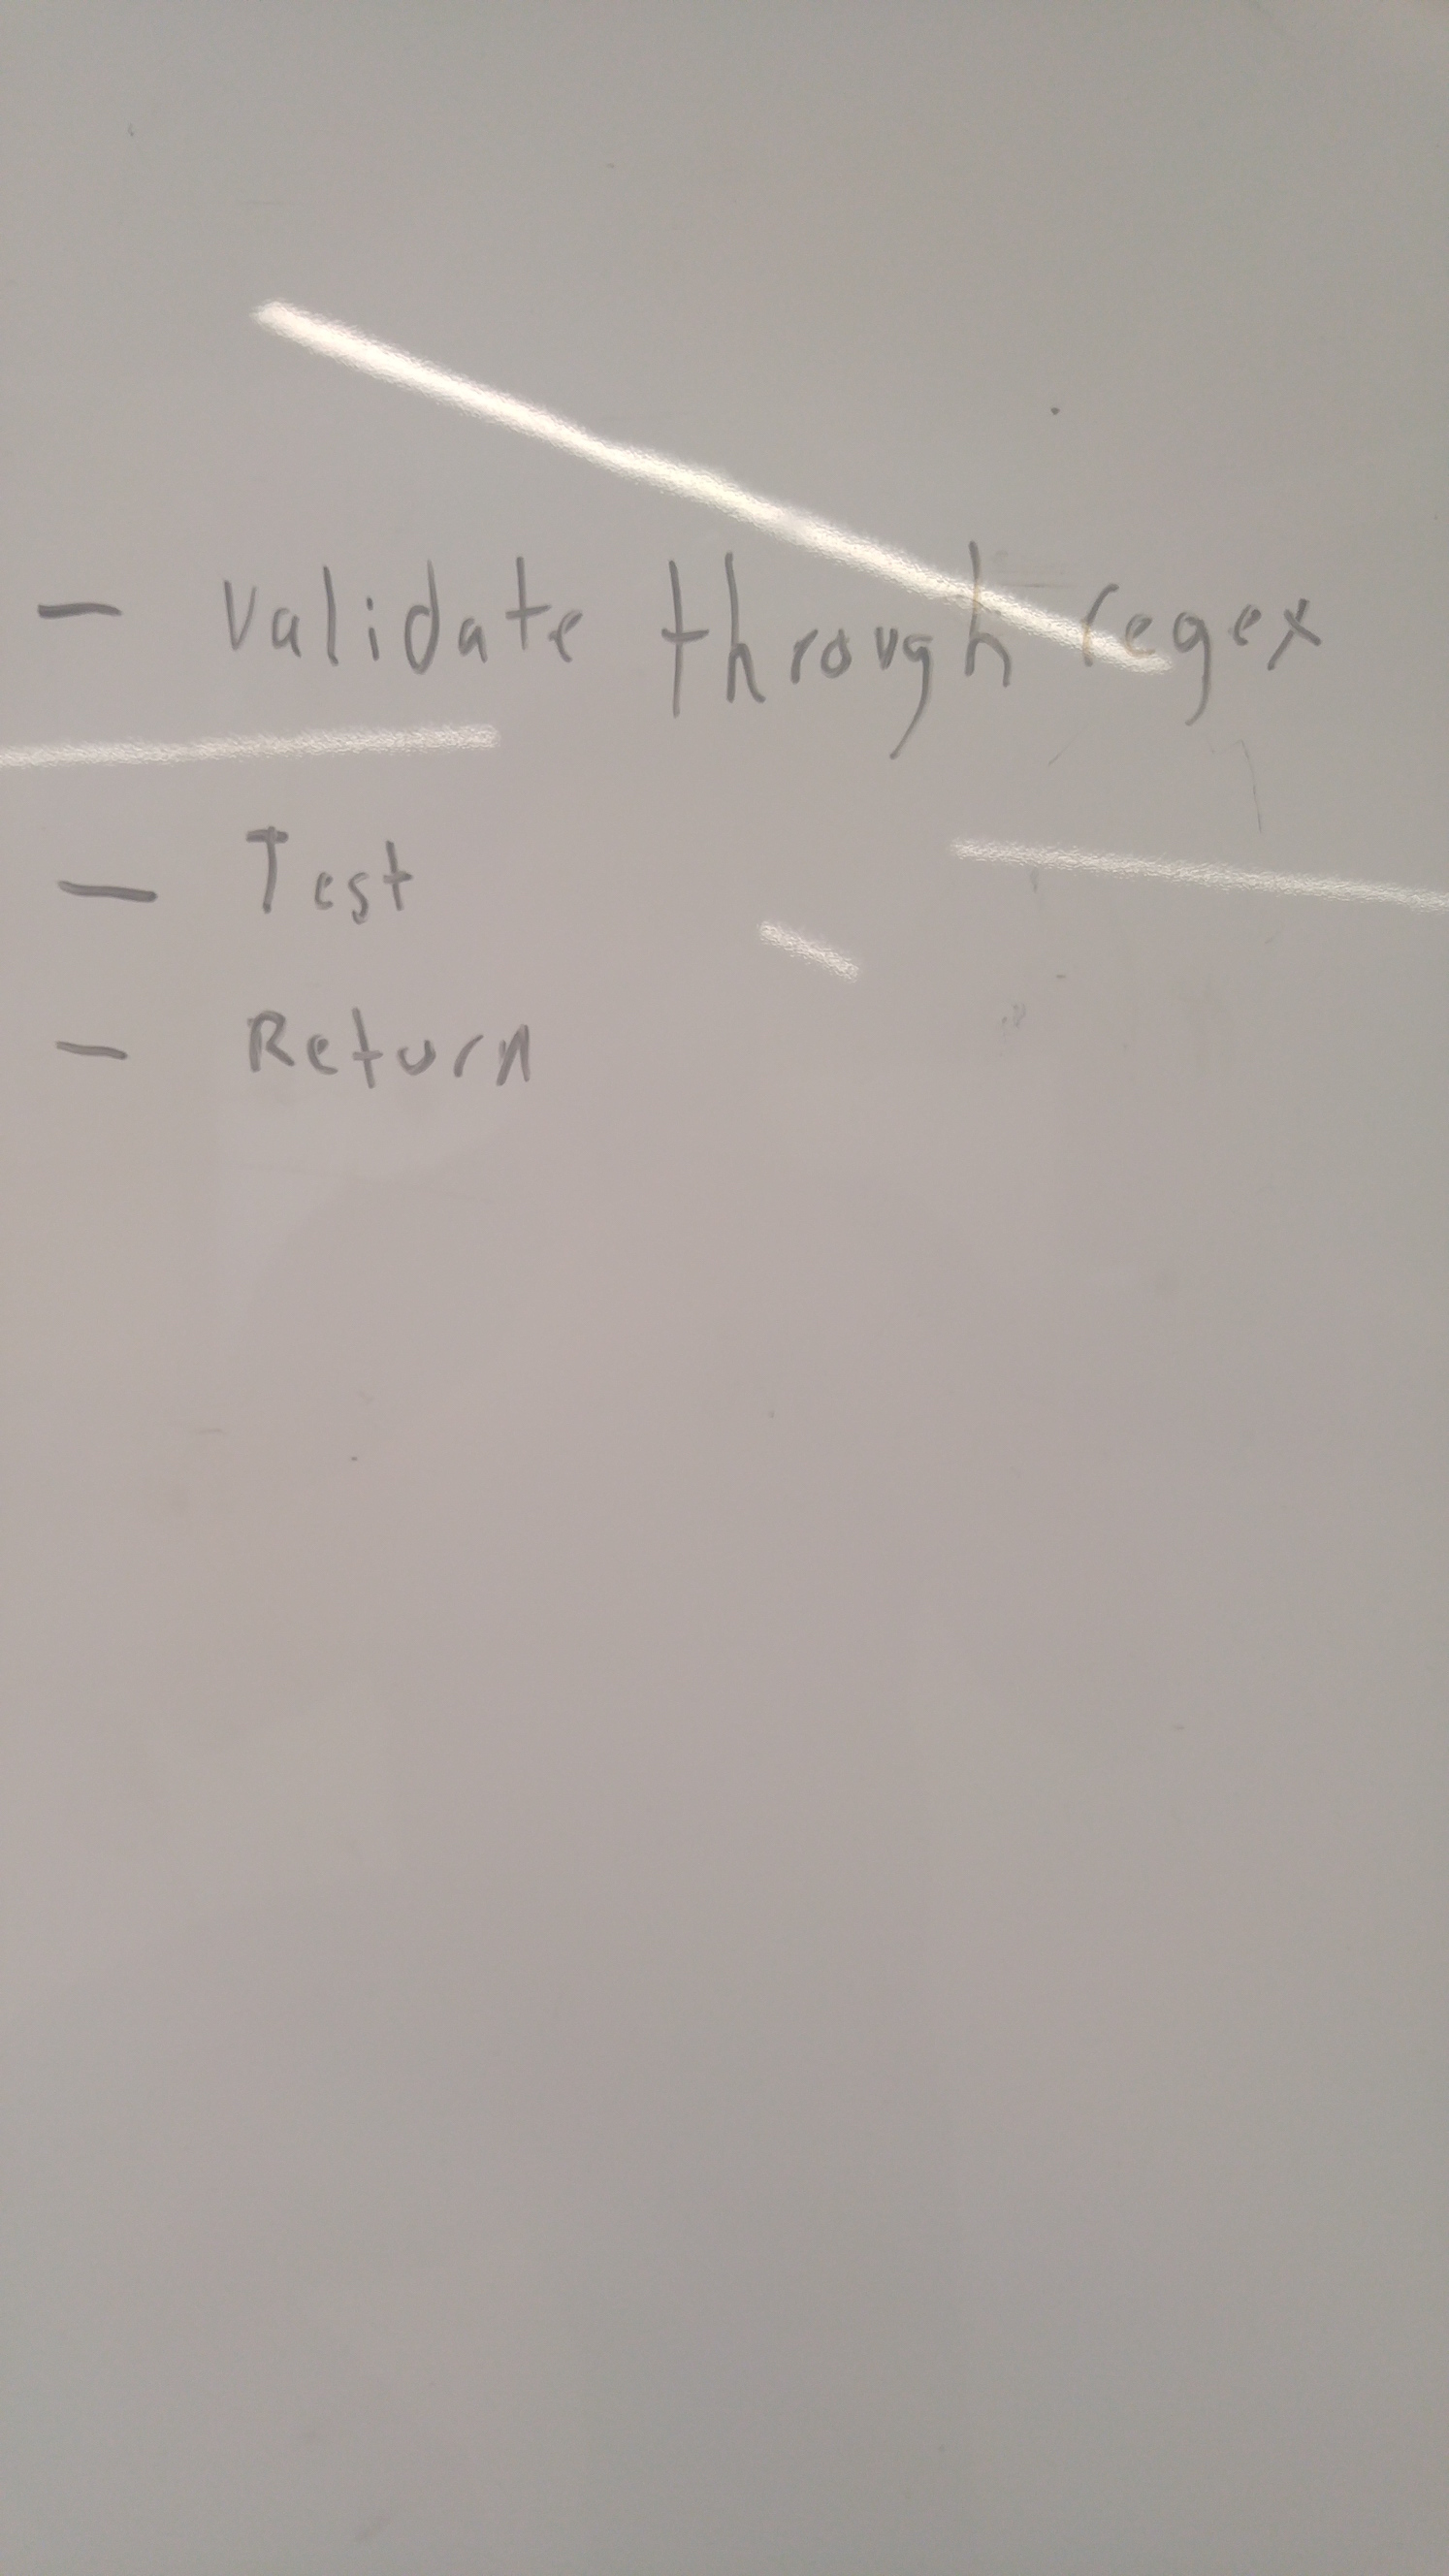 - Validate through regex
- Test
- Return